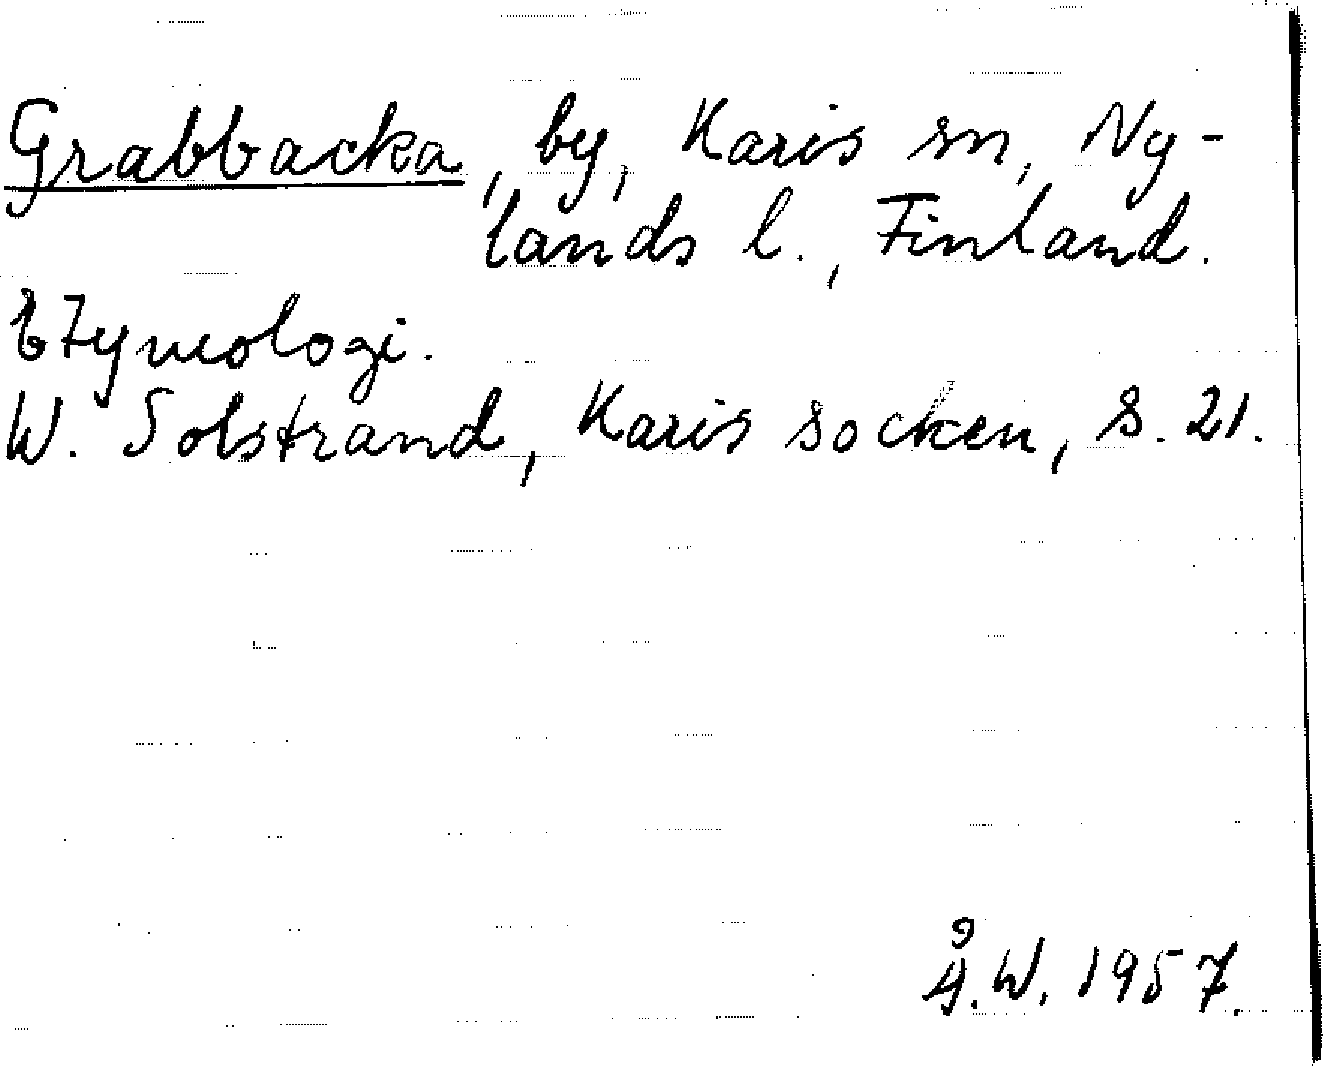 Grabbacka, by, Karis sn, Ny-
lands l., Finland.
Etymologi.
W. Solstrand, Karis socken, s. 21.
Å.W. 1957.